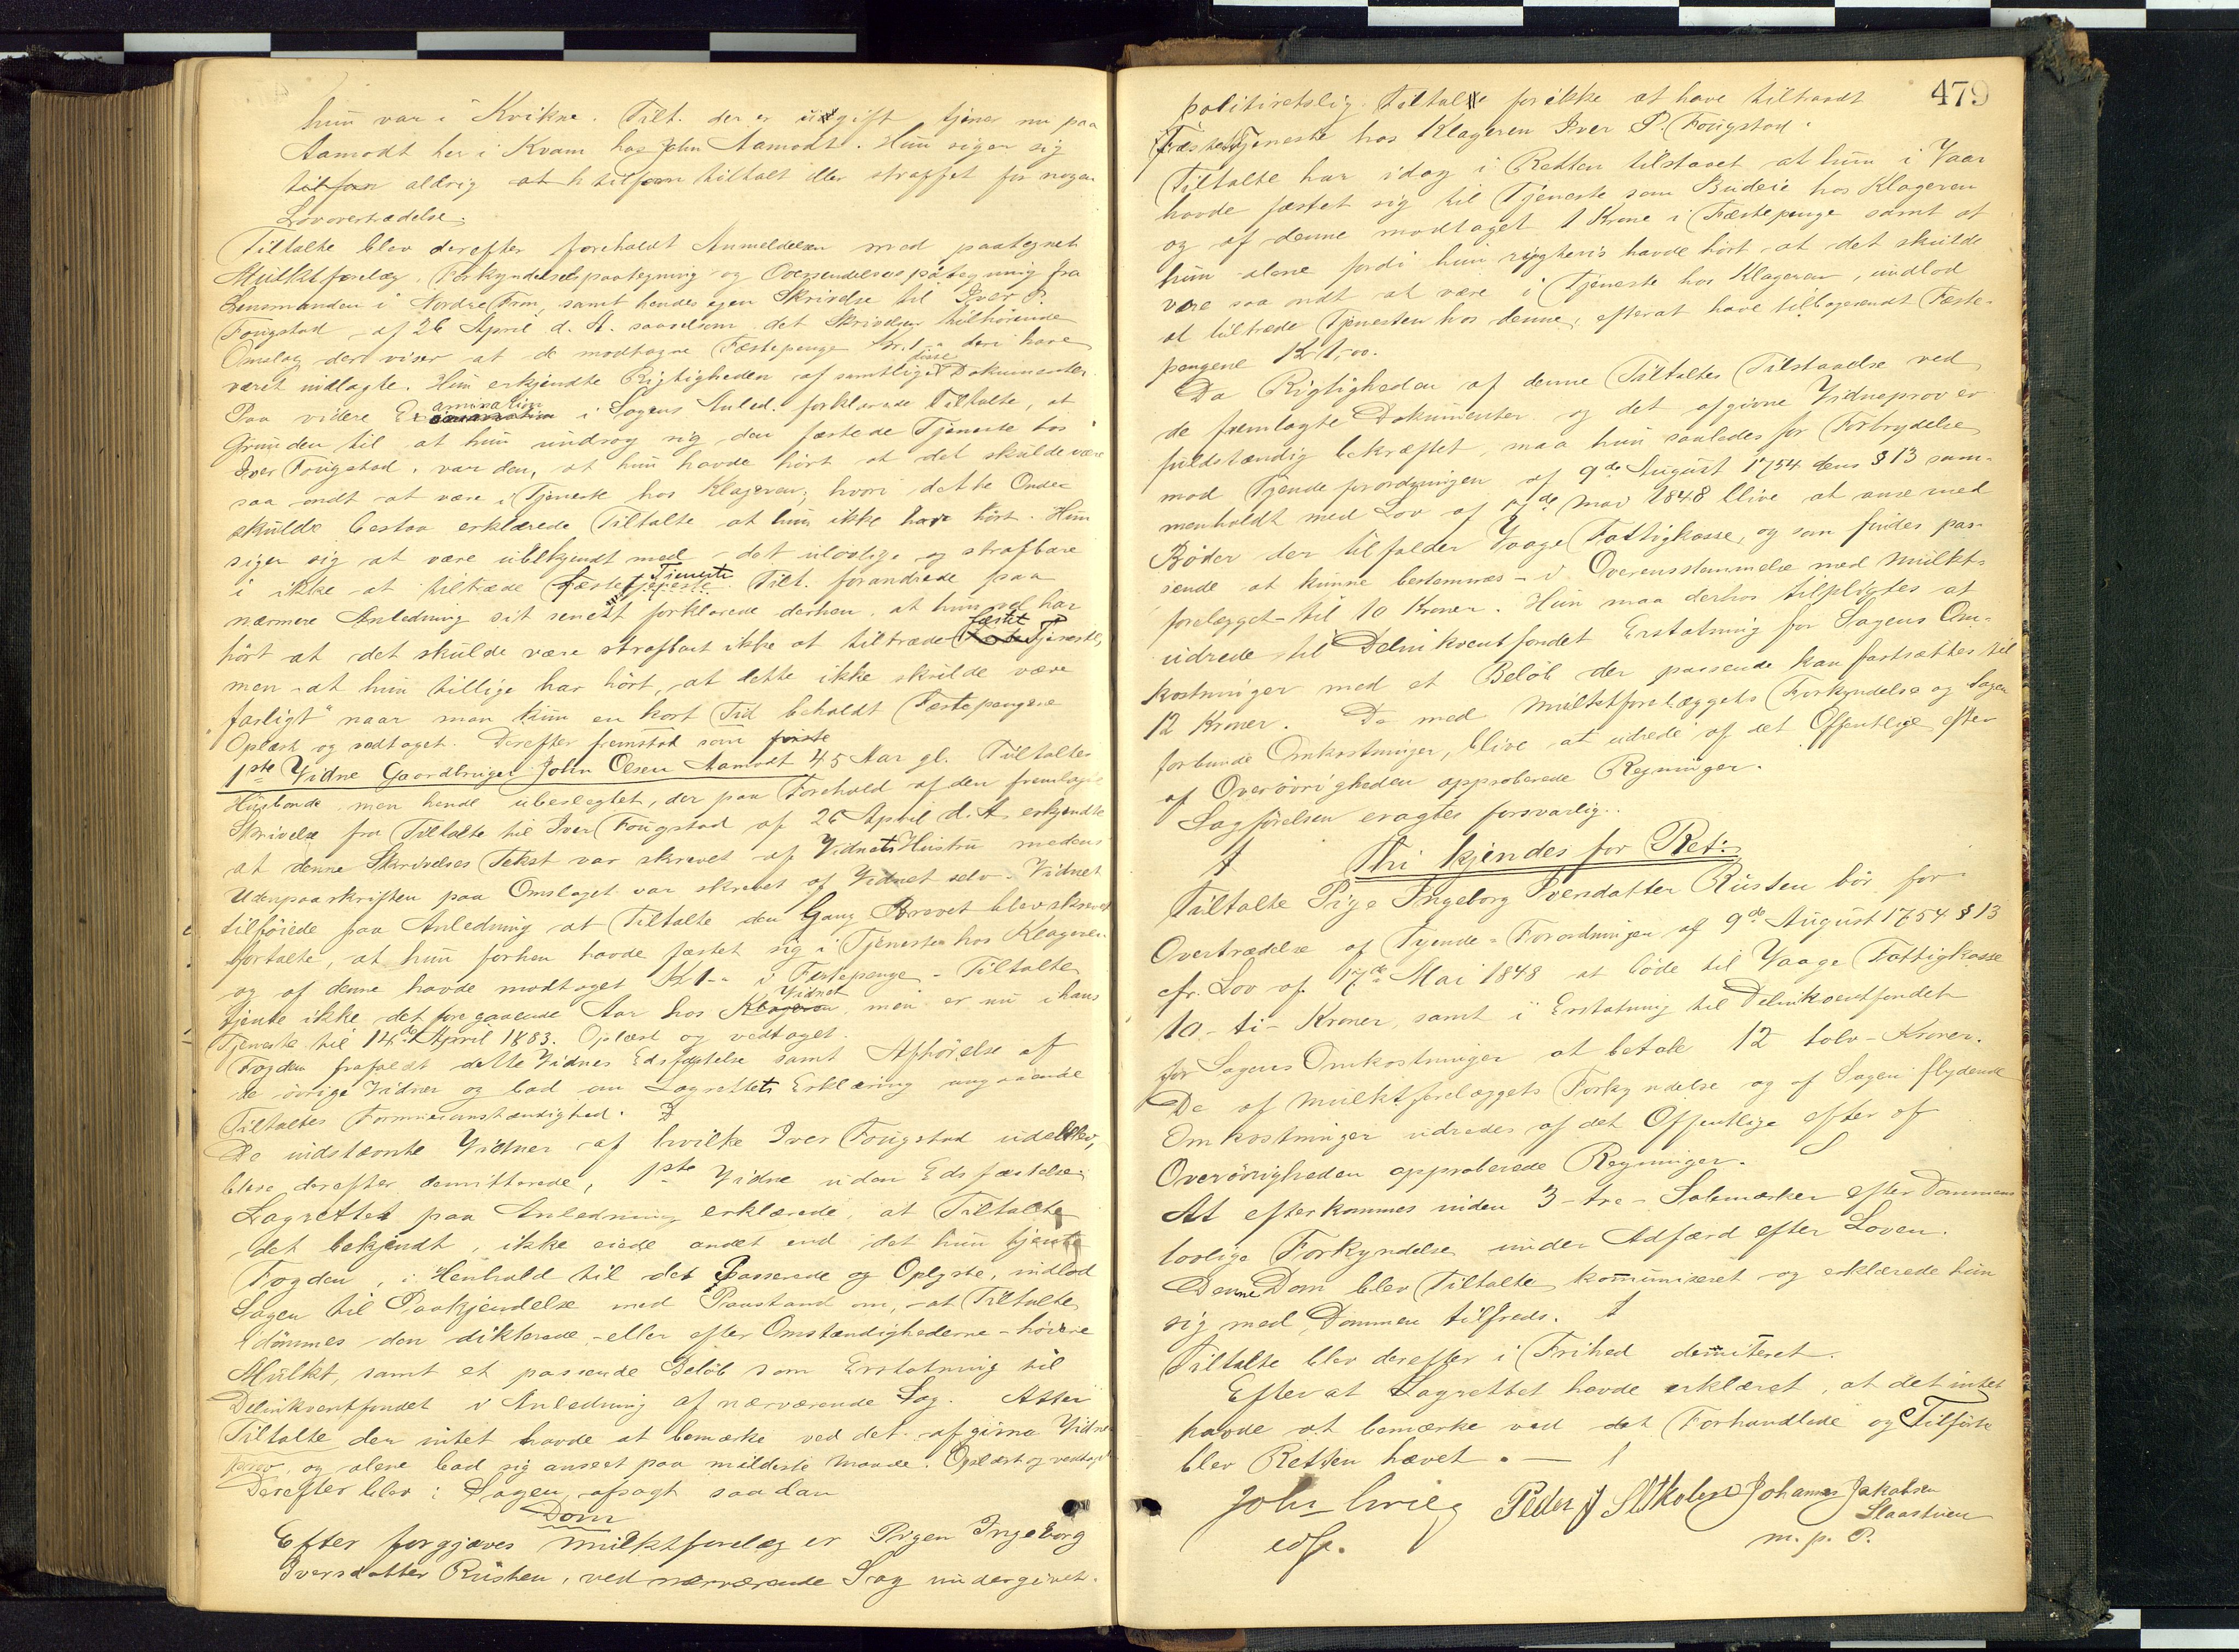 hun var i Kvikne. Tilt. der er ugift tjener nu paa
Aamodt her i Kvam hos John Aamodt. Hun siger sig
tilforn aldrig at tilforn tiltalt eller straffet for nogen
Lovovertrædelse.
Tiltalte blev derefter foreholdt Anmeldelsen med paategnet
Mulktforelæg, Forkyndelsespaategning og Oversendelsespåtegning fra
Lensmanden i Nordre Fron, samt hendes egen Skrivelse til Iver P.
Fougstad af 26 April d. A. saavelsom det Skrivelsen tilhørende
Omslag der viser at de modtagne Fæstepenge Kr. 1 - deri have
været indlagte. Hun erkjendte Rigtigheden af samtlige disse Dokumenter.
Paa videre Examination i Sagens Anled. forklarede Tiltalte, at
Grunden til at hun undrog sig den fæstede Tjeneste hos
Iver Fougstad, var den, at hun havde hørt at det skulde være
saa ondt at være i Tjeneste hos Klageren; hvori dette Onde
skulde bestaa erklærede Tiltalte at hun ikke havde hørt. Hun
siger sig at være ubekjendt med det ulovlige og strafbare
i ikke at tiltræde fæstet Tjeneste. Tilt. forandrede paa
nærmere Anledning sit senest forklarede derhen, at hun vel har
hørt at det skulde være strafbart ikke at tiltræde fæstet Tjeneste,
men at hun tillige har hørt, at dette ikke skulde være
farligt" naar man kun en kort Tid beholdt Fæstepengene
Oplæst og vedtaget. Derefter fremstod som første
1ste Vidne Gaardbruger John Olsen Aamodt 45 Aar gl. Tiltaltes
Husbonde men hende ubeslægtet, der paa Forehold af den fremlagte
Skrivelse fra Tiltalte til Iver Fougstad af 26 April d. A. erkjendte
at denne Skrivelses Tekst var skrevet af Vidnets Hustru medens
Udenpaaskriften paa Omslaget var skrevet af Vidnet selv. Vidnet
tilføiede paa Anledning at Tiltalte den Gang Brevet blev skrevet
fortalte, at hun forhen havde fæstet sig i Tjenesten hos Klageren
og af denne havde modtaget Kr 1 - i Festepenge - Tiltalte
tjente ikke det foregaaende Aar hos Klageren Vidnet, men er nu i hans
Tjeneste til 14de April 1883. Oplæst og vedtaget.
Fogden frafaldt dette Vidnes Edsfæstelse samt Afhørelse af
de øvrige Vidner og bad om Lagrettets Erklæring angaaende
Tiltaltes Formuesomstændighed.
De indstævnte Vidner af hvilke Iver Fougstad udeblev,
bleve derefter demitterede, 1ste Vidne uden Edsfæstelse.
Lagrettet paa Anledning erklærede, at Tiltalte
det bekjendt, ikke eiede andet end det hun tjente
Fogden, i Henhold til det Passerede og Oplyste, indlod
Sagen til Paakjendelse med Paastand om, at Tiltalte
idømmes den dikterede - eller efter Omstændighederne - høiere
Mulkt, samt et passende Beløb som Erstatning til
Delinkventfondet i Anledning af nærværende Sag. Atter
Tiltalte der intet havde at bemærke ved det afgivne Vidne-
prov, og alene bad sig anseet paa mildeste Maade. Oplæst og vedtaget
Derefter blev i Sagen afsagt saadan
Dom
Efter forgjæves Mulktforelæg er Pigen Ingeborg
Iversdatter Rusten, ved nærværende Sag undergivet
479
politiretslig Tiltale for ikke at have tiltraadt
Fæstet Tjeneste hos Klageren Iver P. Fougstad.
Tiltalte har idag i Retten tilstaaet at hun i Vaar
havde fæstet sig til Tjeneste som Budeie hos Klageren
og af denne modtaget 1 Krone i Fæstepenge samt at
hun alene fordi hun rygtevis havde hørt at det skulde
være saa ondt at være i Tjeneste hos Klageren, undlod
at tiltræde Tjenesten hos denne, efterat have tilbagesendt Fæste-
pengene Kr 1,00.
Da Rigtigheden af denne Tiltaltes Tilstaaelse ved
de fremlagte Dokumenter og det afgivne Vidneprov er
fuldstændig bekræftet, maa hun saaledes for Forbrydelse
mod Tyendeforordningen af 9de August 1754 dens § 13 sam-
menholdt med Lov af 17de Mai 1848 blive at anse med
Bøder der tilfalder Vaage Fattigkasse, og som findes pas-
sende at kunne bestemmes - i Overensstemmelse med Mulkt-
forelægget - til 10 Kroner. Hun maa derhos tilpligtes at
udrede til Delinkventfondet Erstatning for Sagens Om-
kostninger med et Beløb der passende kan fastsættes til
12 Kroner. De med Mulktforelæggets Forkyndelse og Sagen
forbundne Omkostninger, blive at udrede af det Offentlige efter
af Overøvrigheden approberede Regninger.
Sagførelsen eragtes forsvarlig.
Thi kjendes for Ret:
Tiltalte Pige Ingeborg Iversdatter Rusten bør for
Overtrædelse af Tyende-Forordningen af 9de August 1754 § 13
cfr. Lov af 17de Mai 1848 at bøde til Vaage Fattigkasse
10 - ti - Kroner, samt i Erstatning til Delinkventfondet
for Sagens Omkostninger at betale 12 tolv - Kroner.
De af Mulktforelæggets Forkyndelse og af Sagen flydende
Omkostninger udredes af det Offentlige efter af
Overøvrigheden approberede Regninger.
At efterkommes inden 3 - tre - Solemærker efter Dommens
lovlige Forkyndelse under Adfærd efter Loven.
Denne Dom blev Tiltalte kommuniseret og erklærede hun
sig med Dommen tilfreds.
Tiltalte blev derefter i Frihed demiteret.
Efter at Lagrettet havde erklæret, at det intet
havde at bemærke ved det Forhandlede og Tilførte
blev Retten hævet. —
John Grieg Peder Johannes Jakobsen
Slaastuen
edf. m. p. P.